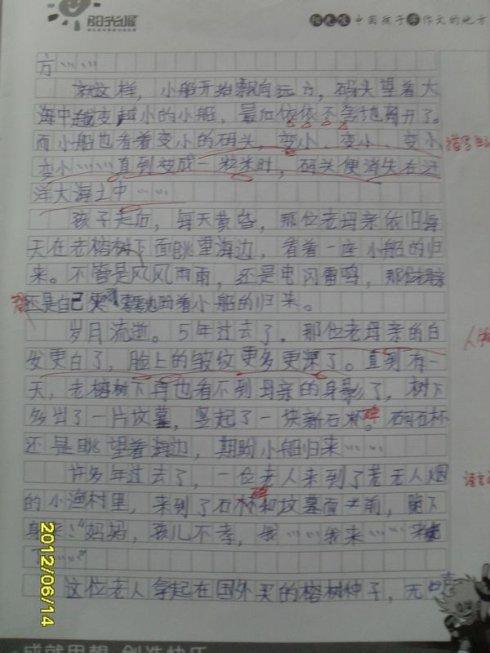 阳光城
中国孩子 作文的地方
方……
就这样，小船开始飘向远方，码头望着大
海中越变越小的小船，最后依依不舍地离开了。
而小船也看着变小的码头，变小、变小、变小
变小……直到变成一粒米时，码头便消失在汪
洋大海之中……
孩子走后，每天黄昏，那位老母亲依旧每
天在老榕树下面眺望海边，看着一座小船的归
来。不管是风风雨雨，还是电闪雷鸣，那位母亲
还是自己 着小船的归来。
岁月流逝。5年过去了，那位老母亲的白
发更白了，脸上的皱纹更多更深了。直到有一
天，老榕树下再也看不到母亲的身影了，树下
多出了一片坟墓，竖起了一块新石碑。石碑
还是眺望着海边，期盼小船归来……
许多年过去了，一位老人来到了荒无人烟
的小渔村里，来到了石碑和坟墓面前，跪下
身来："妈妈，孩儿不孝，我……我来……来
……"
这位老人拿起在国外买的榕树种子，无
2012/06/14
成就思想 创造快乐